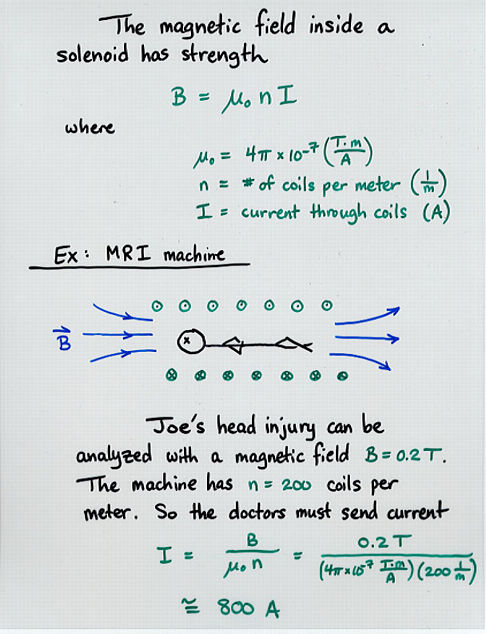 The magnetic field inside a
solenoid has strength
B = μ₀ n I
where
μ₀ = 4π × 10⁻⁷ (T·m/A)
n = # of coils per meter (1/m)
I = current through coils (A)
Ex: MRI machine
B⃗
x
Joe's head injury can be
analyzed with a magnetic field B = 0.2 T.
The machine has n = 200 coils per
meter. So the doctors must send current
I = B/(μ₀ n) = 0.2 T/((4π × 10⁻⁷ T·m/A)(200 1/m))
≅ 800 A